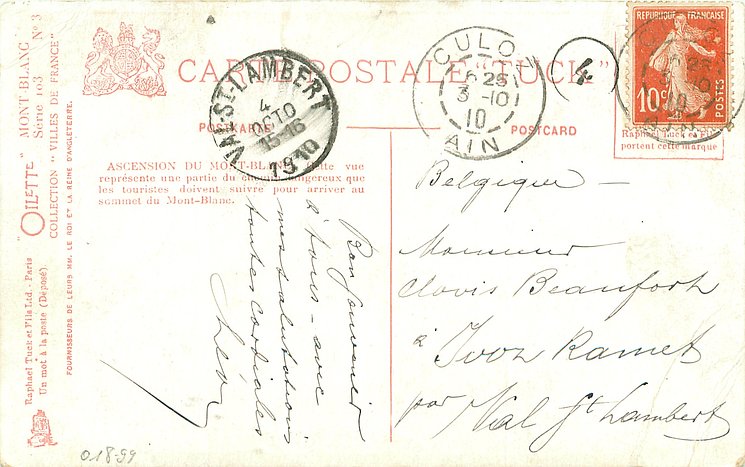 CARTE POSTALE "TUCK"
POSTKARTE
POSTCARD
ASCENSION DU MONT-BLANC. Cette vue
représente une partie du chemin dangereux que
les touristes doivent suivre pour arriver au
sommet du Mont-Blanc.
VAL-ST-LAMBERT
4
OCTO
15-16
1910
CULOZ
6 25
3-10
10
AIN
4
REPUBLIQUE FRANÇAISE
10c
POSTES
Raphael Tuck et Fils
portent cette marque
Belgique —
Monsieur
Clovis Beaufort
à Ivoz Ramet
par Val St Lambert
Bon souvenir
à tous - avec
mes salutations
toutes cordiales
"OILETTE" MONT-BLANC
Série 103 No 3
COLLECTION "VILLES DE FRANCE"
Raphael Tuck et Fils Ltd. - Paris
Un mot à la poste (Déposé).
FOURNISSEURS DE LEURS MM. LE ROI ET LA REINE D'ANGLETERRE.
018-99